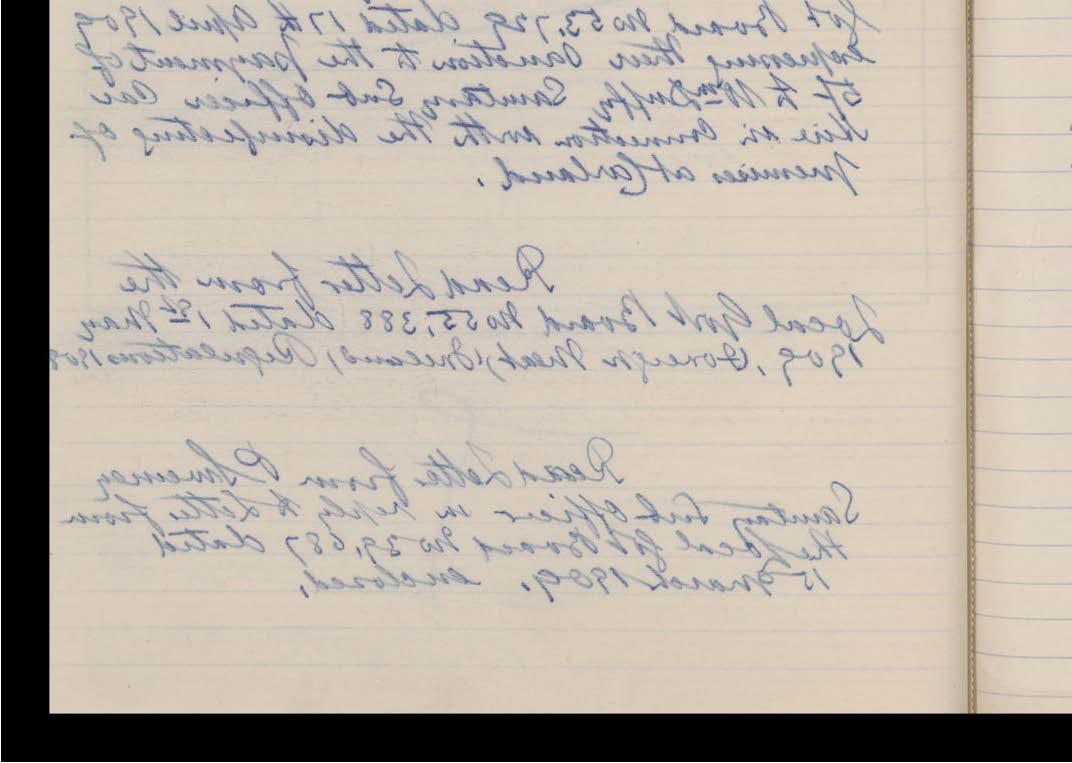 Govt Board No 53,729 dated 17th April 1909
expressing their Sanction to the payment of
5/- to Wm Duffy, Sanitary Sub-Officer Car
Hire in Connection with the disinfecting of
premises at Carland.
Read Letter from the
Local Govt Board No 55,388 dated 1st May
1909, Foreign Meat, (Ireland) Regulations 1909
Read Letter from P Sweeney
Sanitary Sub-Officer in reply to Letter from
the Local Govt Board No 39,687 dated
15 March 1909, enclosed.